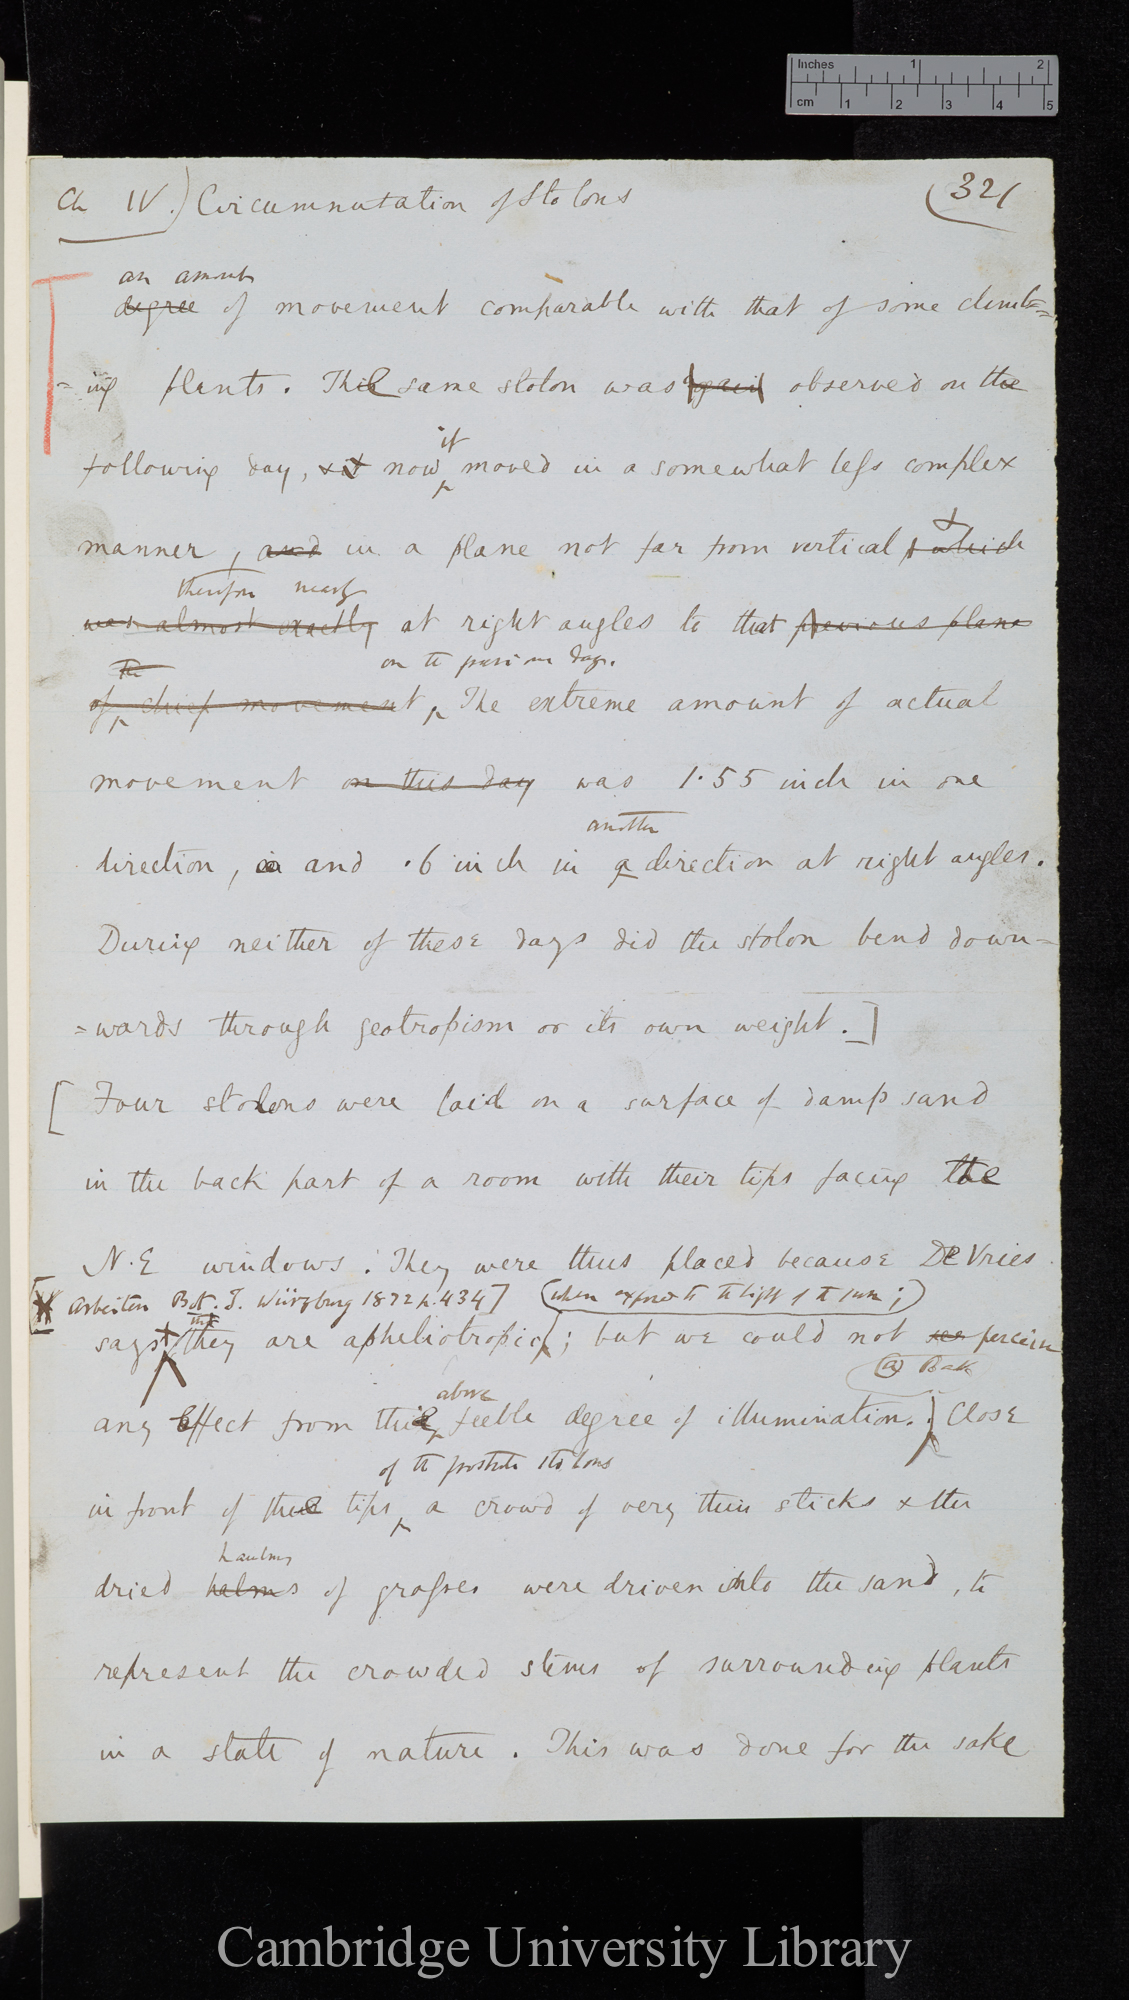 Inches 1 2
cm 1 2 3 4 5
Ch IV.) Circumnutation of Stolons
(32(
an amount
degree of movement comparable with that of some climb=
=ing plants. The same stolon was again observed on the
it
following day, & it now moved in a somewhat less complex
manner, and in a plane not far from vertical, & which
therefore nearly
was almost exactly at right angles to that previous plane
the on the previous day.
of chief movement, The extreme amount of actual
movement on this day was 1.55 inch in one
another
direction, and .6 inch in a direction at right angles.
During neither of these days did the stolon bend down=
=wards through geotropism or its own weight.]
[Four stolons were laid on a surface of damp sand
in the back part of a room with their tips facing the
N.E windows. They were thus placed because De Vries
[* Arbeiten Bot. I. Würzburg 1872 p. 434] (when exposed to the light of the sun;)
that
says they are apheliotropic; but we could not see perceive
(a) Back
above
any Effect from the feeble degree of illumination.) Close
of the prostrate stolons
in front of the tips, a crowd of very thin sticks & the
haulms
dried halms of grasses were driven into the sand, to
represent the crowded stems of surrounding plants
in a state of nature. This was done for the sake
Cambridge University Library